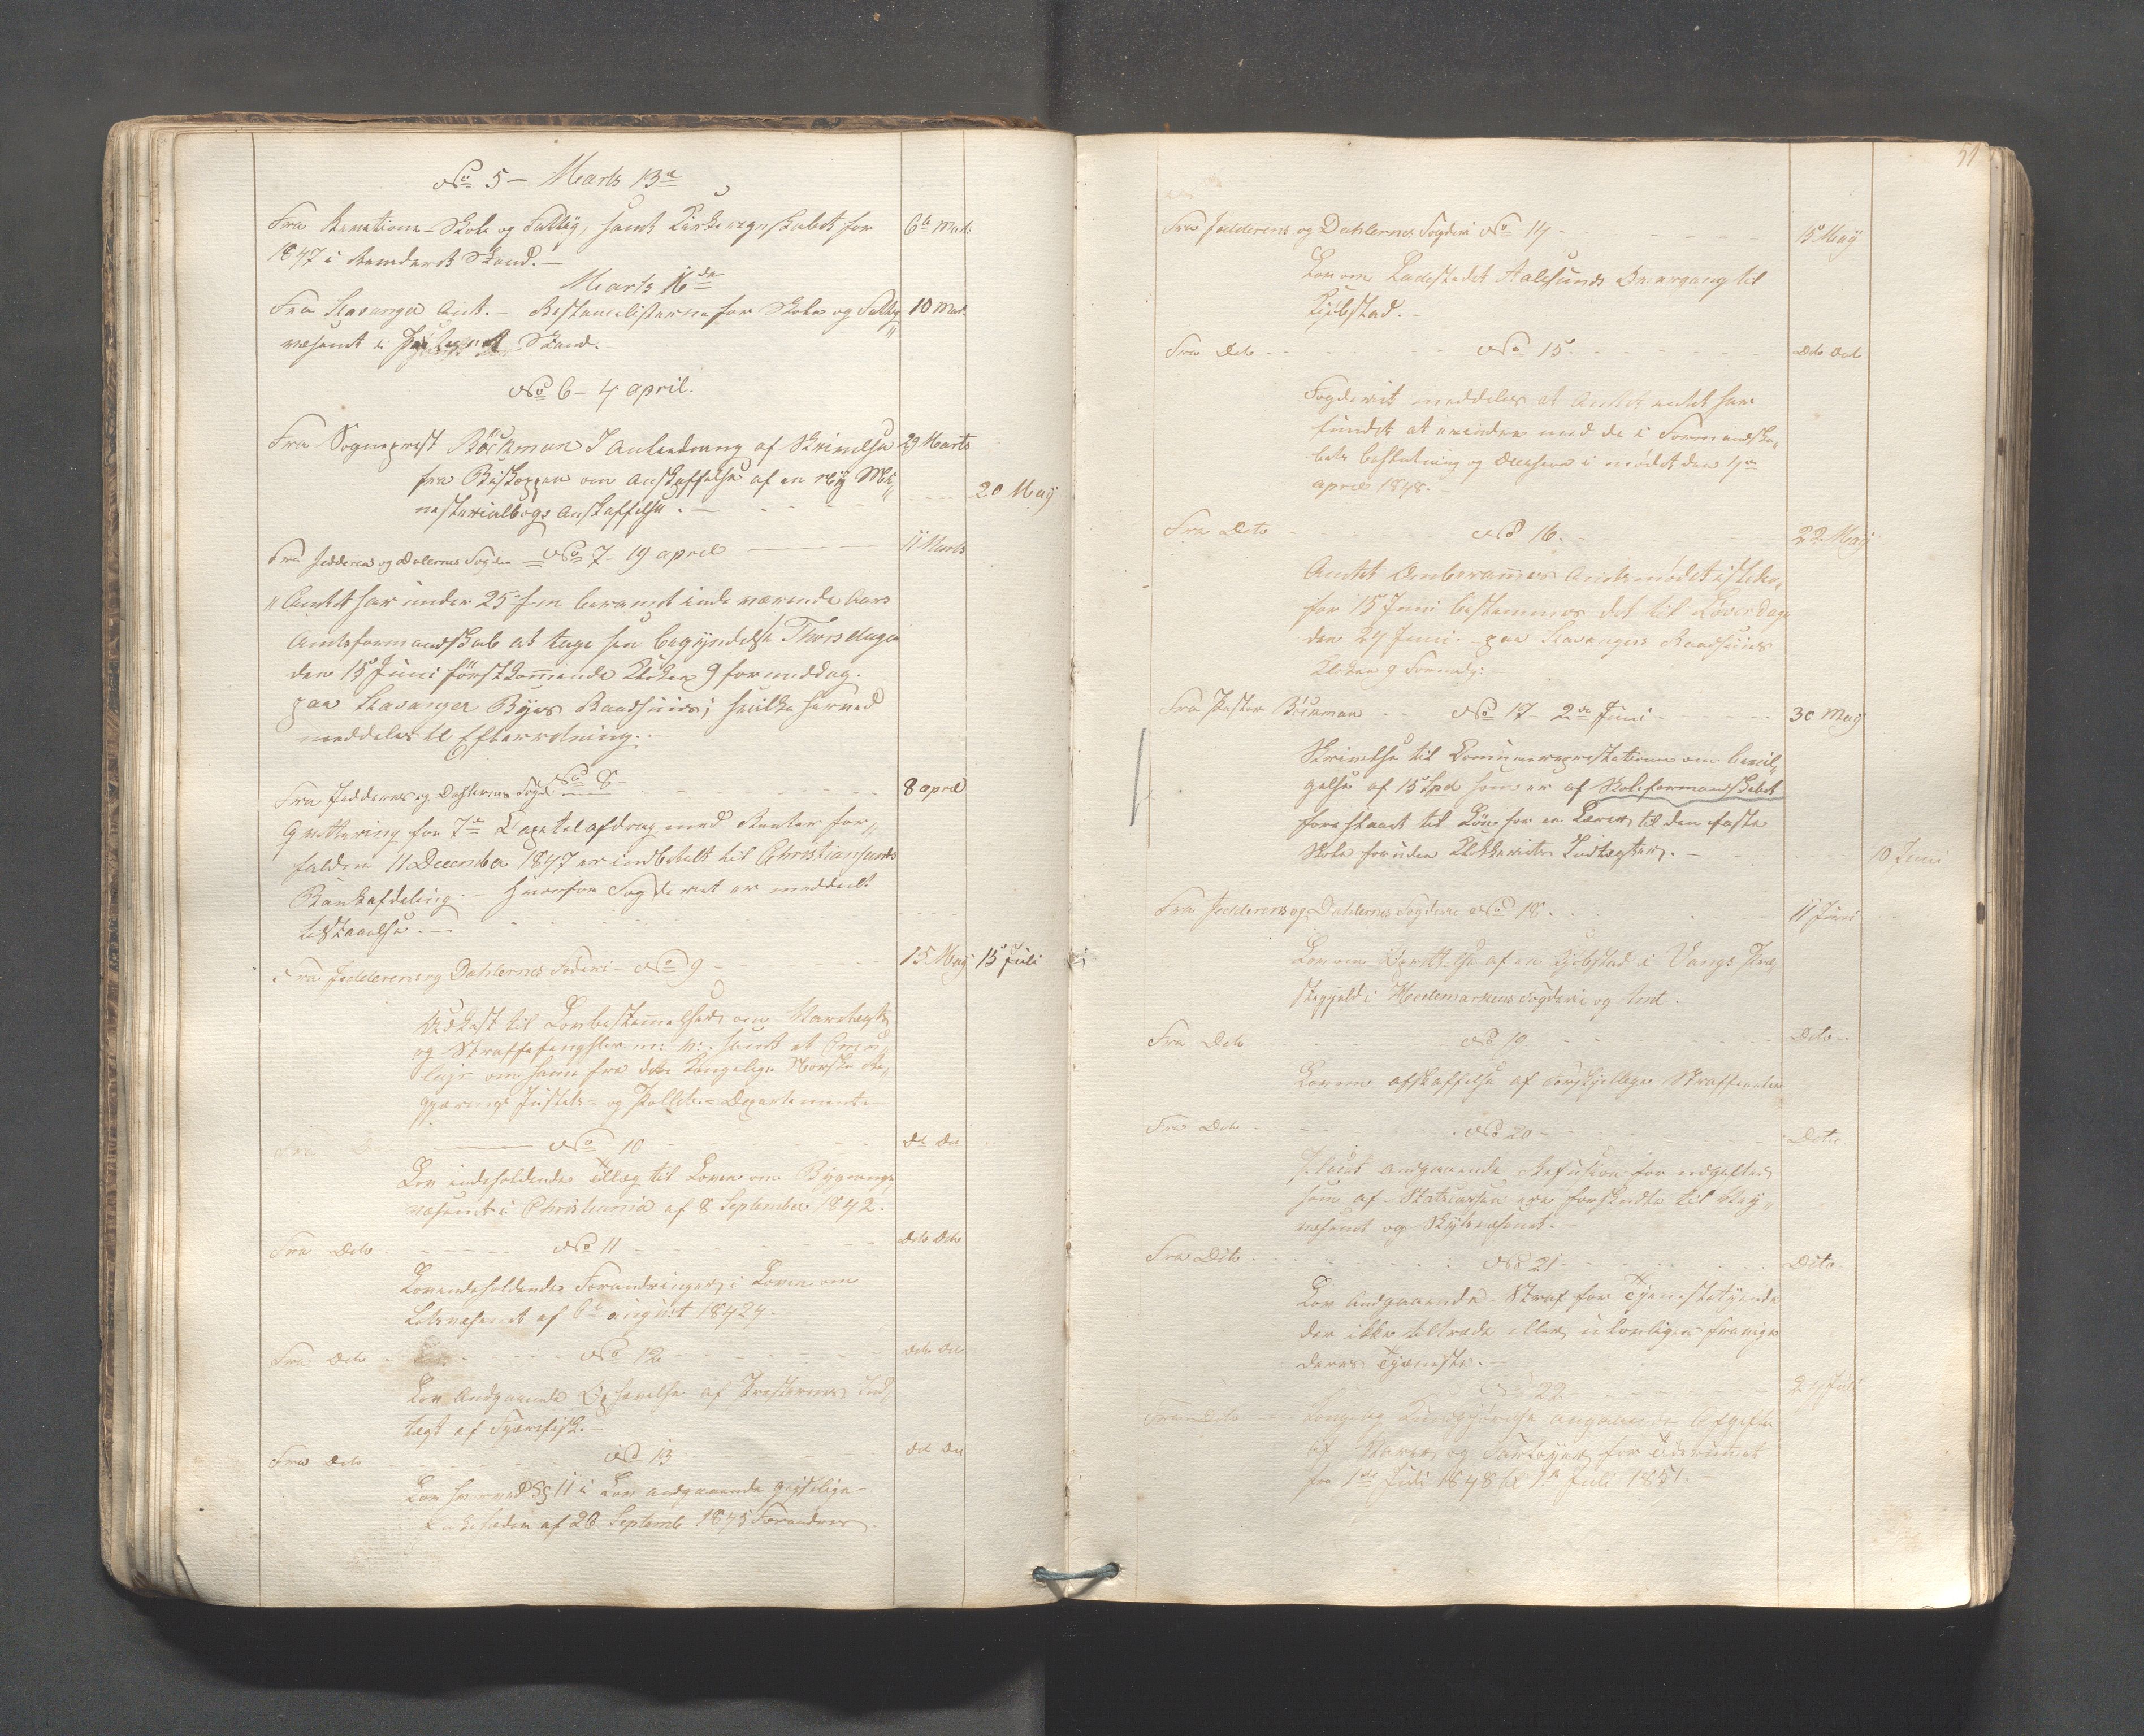 No 5 – Marts 13de
Fra Revisions- Skole og Fattig, samt Kirkeregnskabet for 6te Marts
1847 i Stand.
Marts 16de
Fra Stavanger Amt. – Restancelisterne for Skole og Fattig 10 Mar.
væsenet i Stand.
No 6 – 4 april.
Fra Sogneprest Böckman I Anledning af Skrivelse 29 Marts
fra Biskoppen om Anskaffelse af en Nÿ Mi„
nisterialbogs Anskaffelse. – 20 Maÿ
Fra Jedderen og Dalernes Fogderi No 7 – 19 april 11 Marts
Amtet har under 25 f.m. berammet inde værende Aars
Amtsformandskab at tage sin begÿndelse Thorsdagen
den 15 Juni förstkommende Klokken 9 formiddag.
paa Stavanger Bÿes Raadhuus; hvilke herved
meddeles til Efterretning. –
Fra Jedderens og Dahlernes Fogd. No 8 8 april
Qvittering for 7de Capitalafdrag med Renter for„
falden 11 December 1847 er indbetalt til Christiansands
Bankafdeling. – Hvorfor Fogderiet er meddeelt
tilstaaelse. –
Fra Jedderen og Dahlernes Foderi – No 9 – 15 Maÿ 15 Juli
Udkast til Lovbestemmelser om Varetægts
og Straffefængsler m: v:. samt et
om samme fra det Kongelige Norske Re„
gjerings Justits- og Politie-Departement
No 10 – Do Do
Lov indeholdende Tillæg til Loven om Bygnings
væsenet i Christiania af 8 September 1842.
Fra Dito No 11 Dito Dito
Lov indeholdende Forandringer i Loven om
af 6te august
Fra Dito No 12 Dito Dito
Lov Andgaaende Ophævelse af Presternes Ind„
tægt af
Fra Dito No 13 Do Do
Lov hvorved § 11 i Lov andgaaende geistlige
af 20 Septemb 1845 Forandres.
51
Fra Jedderens og Dahlernes Fogderi No 14 15 Maÿ
Lov om Ladestedet Aalesunds Overgang til
Kjöbstad. –
Fra Dito No 15. Dito Dito
Fogderiet meddeles at Amtet intet har
fundet at erindre med de i Formandska„
bets beslutning og i mödet den 4de
april 1848. –
Fra Dito No 16. 22 Maÿ
Amtet Amtsmödet isteden„
for 15 Juni bestemmes det til Löverdag
den 24 Juni. – paa Stavangers Raadhuus
Klokken 9 Formdg. –
Fra Pastor Böckman No 17 – 2de Juni 30 Maÿ
Skrivelse til Communerepresentationen om bevil„
gelse af 15 Spd som er af Skoleformandskabet
foreslaaet til Lön for en Lærer til den faste
Skole foruden Klokkeriets Indtægter. – 10 Juni
Fra Jedderens og Dahlernes Fogderi No 18. 11 Juni
Lov om Oprettelse af en Kjöbstad i Vangs Præ„
stegjeld i Hedemarkens Fogderie og Amt.
Fra Dito No 19 Dito
Lov om afskaffelse af Forskjellige Straffearter
Fra Dito No 20 Dito
andgaaende Refusion for udgifter,
som af Statscassen ere forskudte til Veÿ„
væsenet og Skÿdsvæsenet. –
Fra Dito No 21 Dito
Lov Andgaaende Straf for Tjenestetyende
der ikke tiltræde eller ulovligen fravige
deres Tjæneste. –
No 22 24 Juli
Fra Dito Kongelig Kundgjörelse angaaende Afgifter
af Varer og Fartöyer for Tidsrummet
fra 1de Juli 1848 til 1te Juli 1851. –